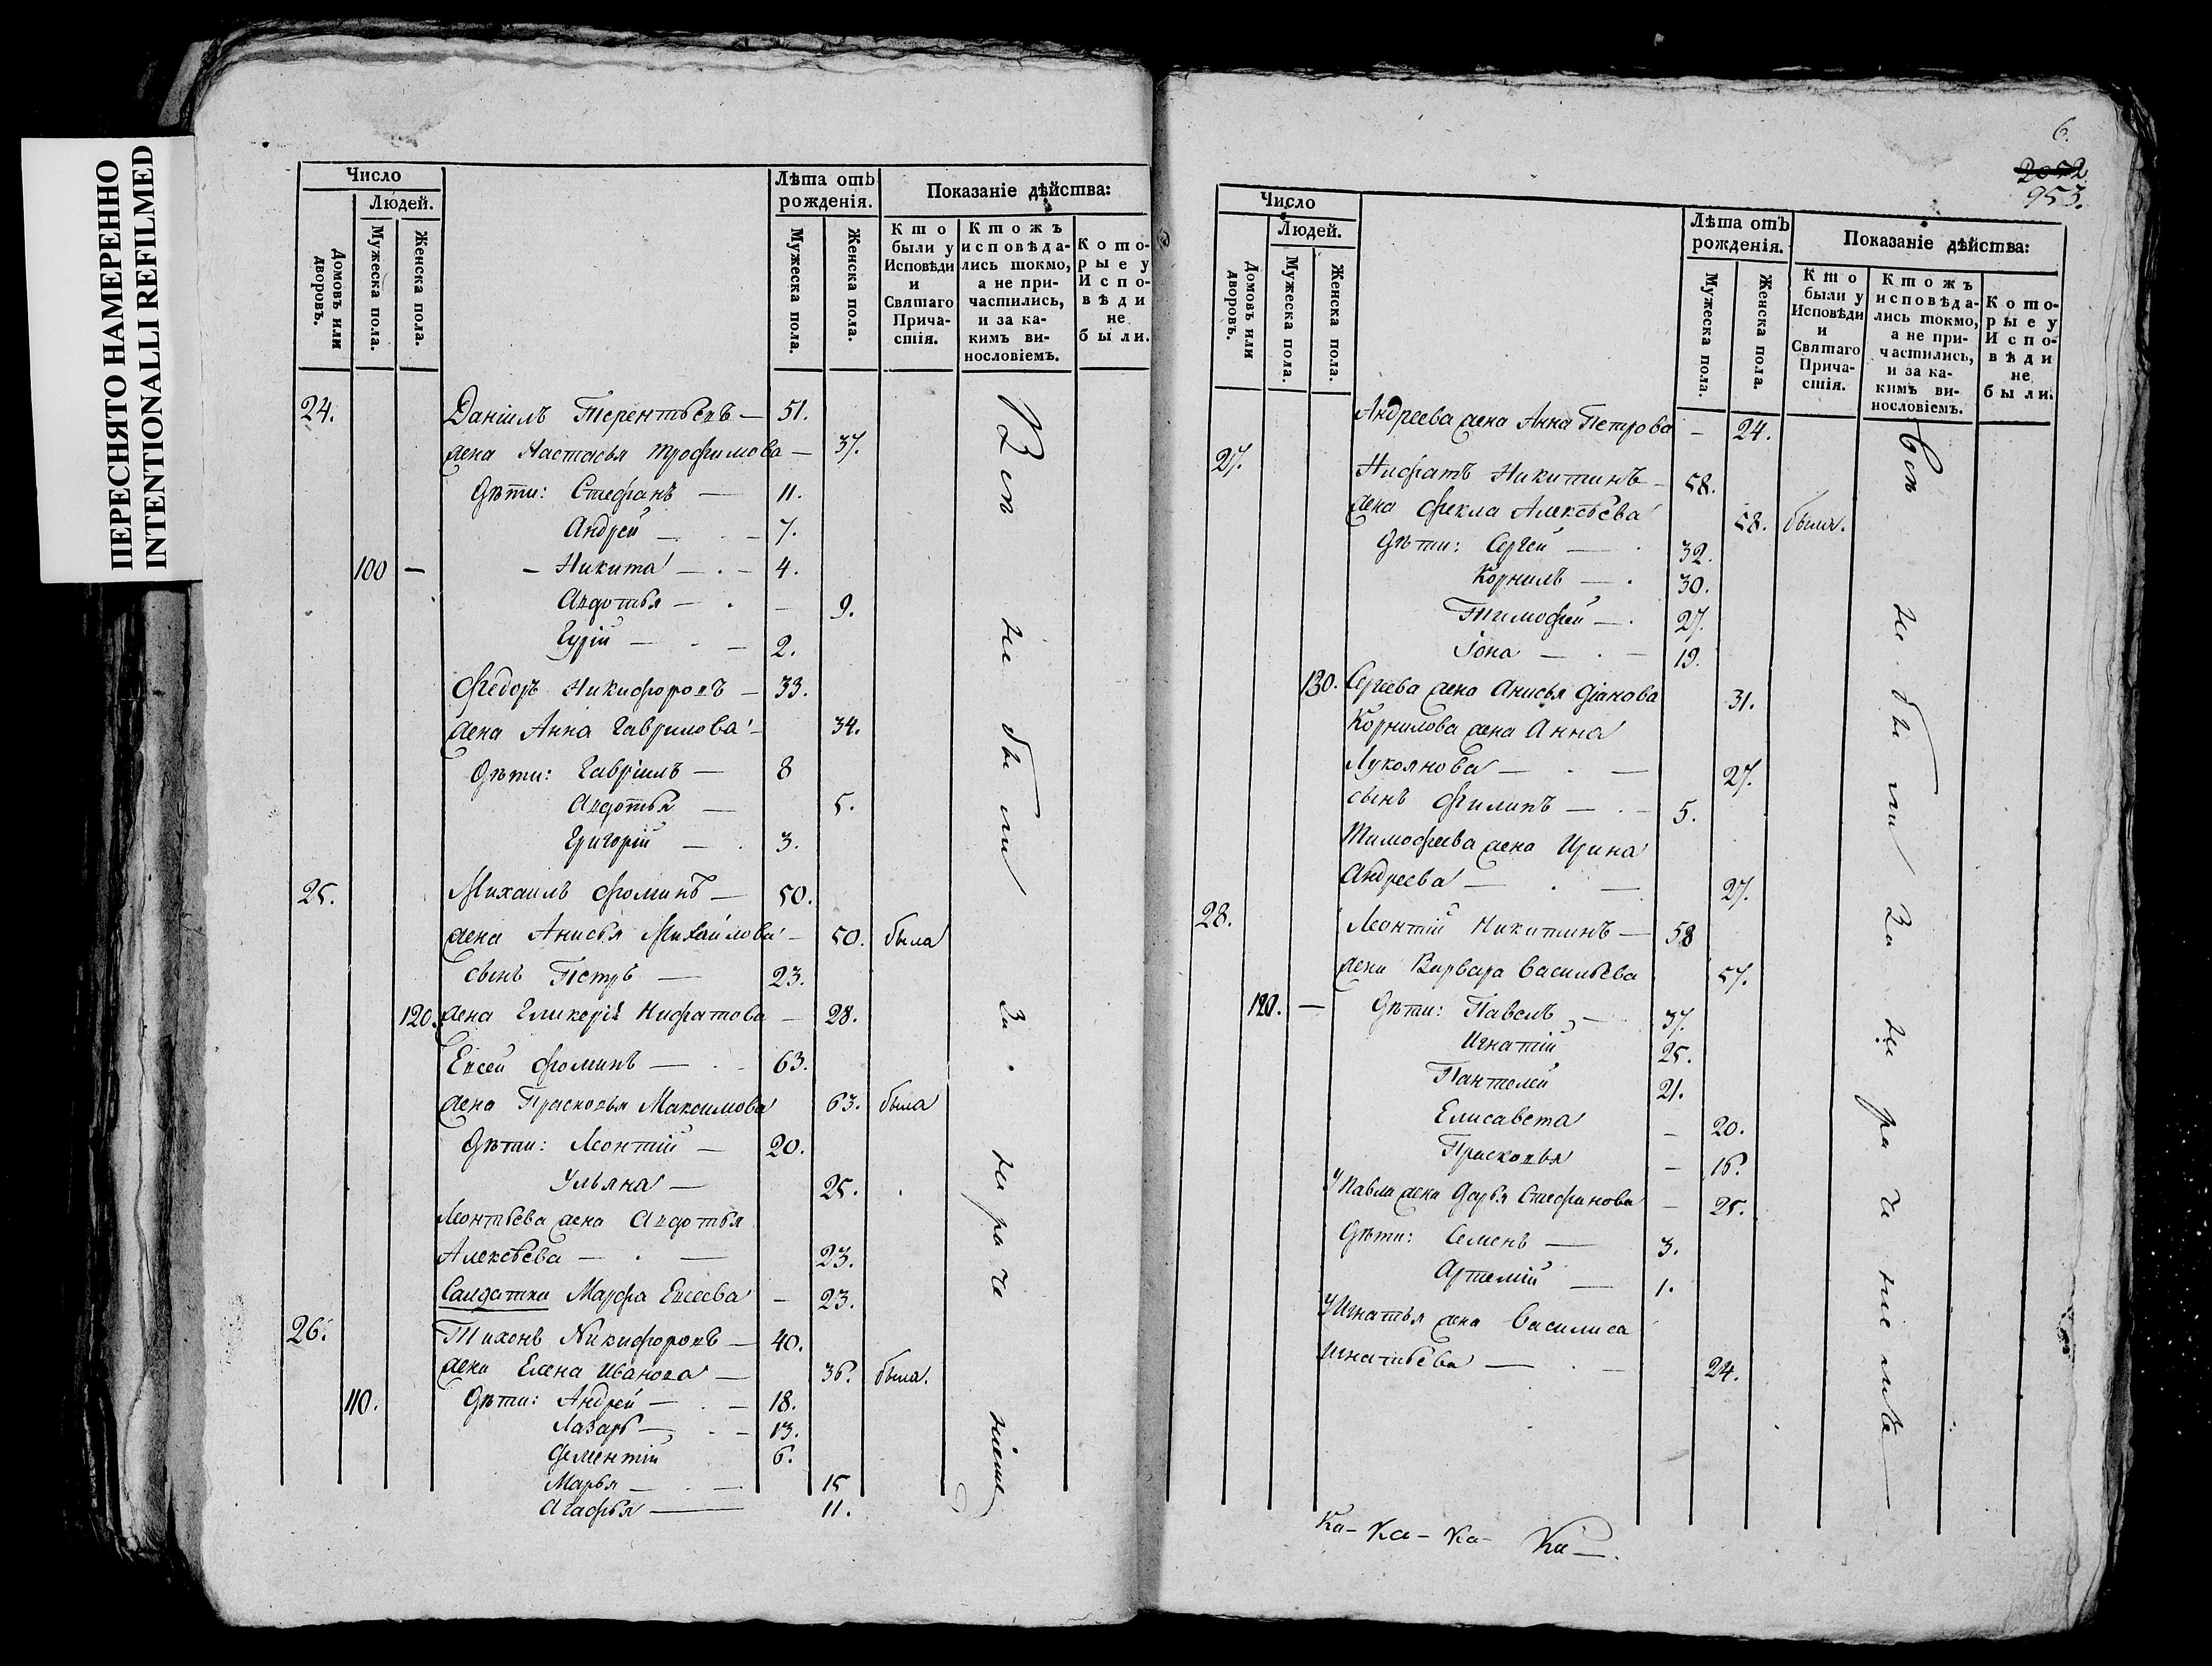 ПЕРЕСНЯТО НАМЕРЕННО
INTENTIONALLI REFILMED
Число
Людей.
Домовъ или дворовъ.
Мужеска пола.
Женска пола.
Лѣта отъ рожденія.
Мужеска пола.
Женска пола.
Показаніе дѣйства:
Кто были у Исповѣди и Святаго Причастія.
Ктожъ исповѣдались токмо, а не причастились, и за какимъ винословіемъ.
Которые у Исповѣди не были.
24. Даніилъ Терентьевъ — 51.
жена Настасья Трофимова — 37.
Дѣти: Стефанъ — 11.
Андрей — 7.
100 — Никита — 4.
Авдотья — 9.
Гурій — 2.
Федоръ Никифоровъ — 33.
жена Анна Гаврилова — 34.
Дѣти: Гавріилъ — 8
Авдотья — 5.
Григорій — 3.
25. Михаилъ Фоминъ — 50.
жена Анисья Михайлова — 50. была
сынъ Петръ — 23.
120. жена Гликерія Нифатова — 28.
Евсей Фоминъ — 63.
жена Прасковья Максимова 63. была
Дѣти: Леонтій — 20.
Ульяна — 25.
Леонтьева жена Авдотья
Алексѣева — 23.
Салдатка Марфа Евсеева — 23.
26. Тихонъ Никифоровъ — 40.
жена Елена Иванова — 36. была.
110. Дѣти: Андрей — 18.
Лазарь — 13.
Дементій 6.
Марья — 15
Агафья — 11.
Всѣ не были за нераченіемъ
6.
2052
953.
Число
Людей.
Домовъ или дворовъ.
Мужеска пола.
Женска пола.
Лѣта отъ рожденія.
Мужеска пола.
Женска пола.
Показаніе дѣйства:
Кто были у Исповѣди и Святаго Причастія.
Ктожъ исповѣдались токмо, а не причастились, и за какимъ винословіемъ.
Которые у Исповѣди не были.
Андреева жена Анна Петрова — 24.
27. Нифатъ Никитинъ — 58.
жена Фекла Алексѣева 58. была.
Дѣти: Сергей — 32.
Корнилъ — 30.
Тимофей — 27.
Іона — 19.
130. Сергеева жена Анисья Діанова 31.
Корнилова жена Анна
Лукоянова — 27.
сынъ Филипъ — 5.
Тимофеева жена Ирина
Андреева — 27.
28. Леонтій Никитинъ — 58
жена Варвара Васильева 57.
120. — Дѣти: Павелъ — 37.
Игнатій 25.
Пантелей 21.
Елисавета — 20.
Прасковья — 16.
У Павла жена Дарья Стефанова — 25.
Дѣти: Семенъ — 3.
Артемій — 1.
У Игнатья жена Василиса
Игнатьева — 24.
Всѣ не были за нераченіемъ
Ка- Ка- Ка- Ка-.